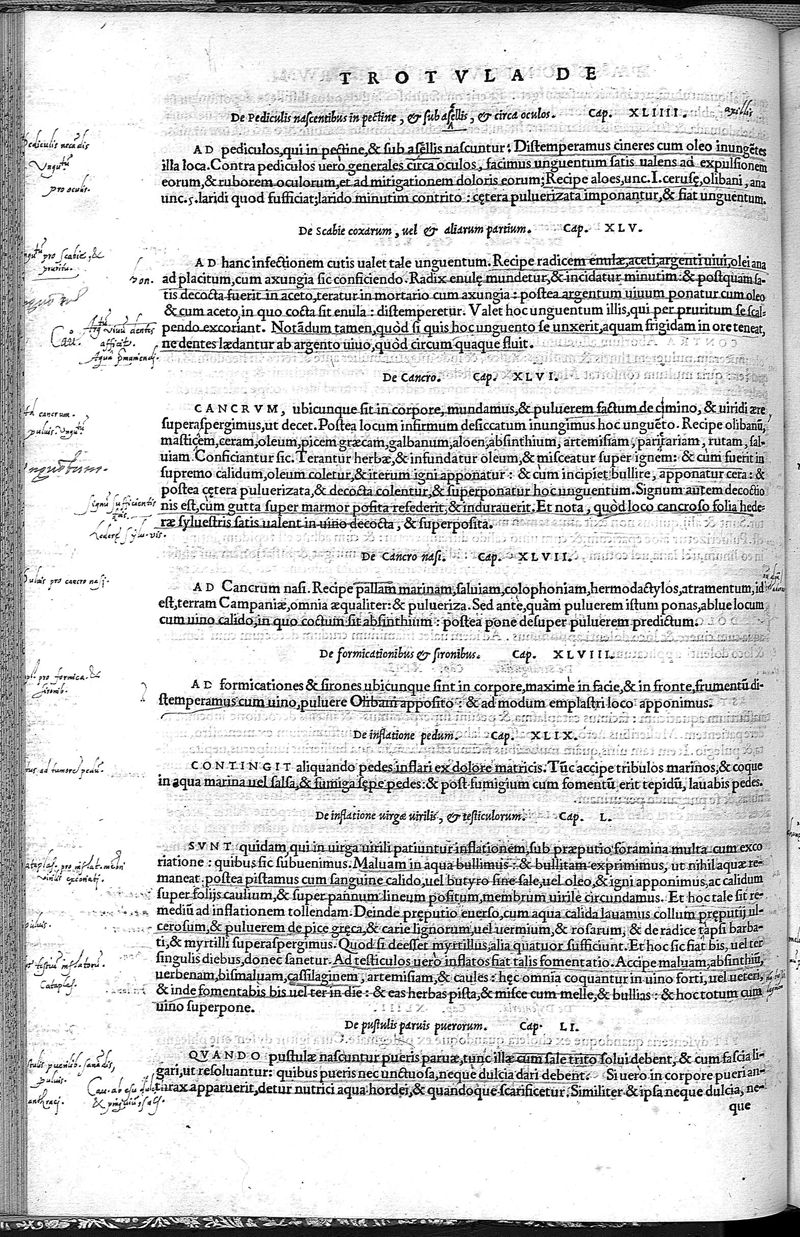 TROTVLA DE
De Pediculis nascentibus in pectine, & sub asellis, & circa oculos. Cap. XLIIII. axillis
AD pediculos, qui in pectine, & sub asellis nascuntur: Distemperamus cineres cum oleo inungētes
illa loca. Contra pediculos uerò generales circa oculos, facimus unguentum satis ualens ad expulsionem
eorum, & ruborem oculorum, et ad mitigationem doloris eorum; Recipe aloes, unc. I. ceruse, olibani, ana
unc. s. laridi quod sufficiat; larido minutim contrito: cętera puluerizata imponantur, & fiat unguentum.
pro oculis.
De Scabie coxarum, uel & aliarum partium. Cap. XLV.
AD hanc infectionem cutis ualet tale unguentum. Recipe radicem enulæ, aceti, argenti uiui, olei ana
ad placitum, cum axungia sic conficiendo. Radix enulę mundetur, & incidatur minutim: & postquam sa-
tis decocta fuerit in aceto, teratur in mortario cum axungia: postea argentum uiuum ponatur cum oleo
& cum aceto, in quo cocta sit enula: distemperetur. Valet hoc unguentum illis, qui per pruritum se scal-
pendo excoriant. Notādum tamen, quòd si quis hoc unguento se unxerit, aquam frigidam in ore teneat,
ne dentes lædantur ab argento uiuo, quòd circum quaque fluit.
De Cancro. Cap. XLVI.
CANCRVM, ubicunque sit in corpore, mundamus, & puluerem factum de cimino, & uiridi ære
superaspergimus, ut decet. Postea locum infirmum desiccatum inungimus hoc unguēto. Recipe olibanū,
masticem, ceram, oleum, picem græcam, galbanum, aloen, absinthium, artemisiam, paritariam, rutam, sal-
uiam Conficiantur sic. Terantur herbæ, & infundatur oleum, & misceatur super ignem: & cum fuerit in
supremo calidum, oleum coletur, & iterum igni apponatur: & cùm incipiet bullire, apponatur cera: &
postea cętera puluerizata, & decocta colentur, & superponatur hoc unguentum. Signum autem decoctio
nis est, cùm gutta super marmor posita resederit, & indurauerit. Et nota, quòd loco cancroso folia hede-
ræ syluestris satis ualent in uino decocta, & superposita.
De Cancro nasi. Cap. XLVII.
AD Cancrum nasi. Recipe pallam marinam, saluiam, colophoniam, hermodactylos, atramentum, id
est, terram Campaniæ, omnia æqualiter: & pulueriza. Sed antè, quàm puluerem istum ponas, ablue locum
cum uino calido, in quo coctum sit absinthium: postea pone desuper puluerem predictum.
De formicationibus & sironibus. Cap. XLVIII.
AD formicationes & sirones ubicunque sint in corpore, maximè in facie, & in fronte, frumentū di-
stemperamus cum uino, puluere Olibani apposito: & ad modum emplastri loco apponimus.
De inflatione pedum. Cap. XLIX.
CONTINGIT aliquando pedes inflari ex dolore matricis. Tūc accipe tribulos marinos, & coque
in aqua marina uel salsa, & fumiga sępe pedes: & post fumigium cum fomentū erit tepidū, lauabis pedes.
De inflatione uirgæ uirilis, & testiculorum. Cap. L.
SVNT quidam, qui in uirga uirili patiuntur inflationem, sub præputio foramina multa cum exco
riatione: quibus sic subuenimus. Maluam in aqua bullimus: & bullitam exprimimus, ut nihil aquæ re-
maneat. postea pistamus cum sanguine calido, uel butyro sine sale, uel oleo, & igni apponimus, ac calidum
super folijs caulium, & super pannum lineum positum, membrum uirile circundamus. Et hoc tale sit re-
mediū ad inflationem tollendam. Deinde pręputio euerso, cum aqua calida lauamus collum pręputij ul-
cerosum, & puluerem de pice gręca, & carie lignorum, uel uermium, & rosarum, & de radice tapsi barba-
ti, & myrtilli superaspergimus. Quod si deesset myrtillus, alia quatuor sufficiunt. Et hoc sic fiat bis, uel ter
singulis diebus, donec sanetur. Ad testiculos uerò inflatos fiat talis fomentatio. Accipe maluam, absinthiū,
uerbenam, bismaluam, cassilaginem, artemisiam, & caules: hęc omnia coquantur in uino forti, uel ueteri,
& inde fomentabis bis uel ter in die: & eas herbas pista, & misce cum melle, & bullias: & hoc totum cum
uino superpone.
De pustulis paruis puerorum. Cap. LI.
QVANDO pustulæ nascuntur pueris paruæ, tunc illæ cum sale trito solui debent, & cum fascia li-
gari, ut resoluantur: quibus pueris nec unctuosa, neque dulcia dari debent. Si uerò in corpore pueri an-
thrax apparuerit, detur nutrici aqua hordei, & quandoque scarificetur. Similiter & ipsa neque dulcia, ne-
que